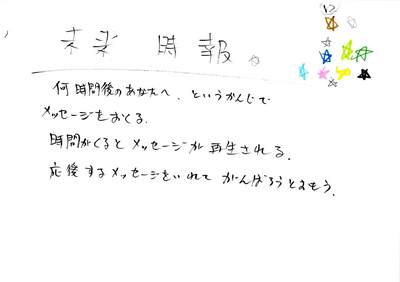 12
未来 時報。
何時間後のあなたへ、というかんじで
メッセージをおくる。
時間がくるとメッセージが再生される。
応後するメッセージをいれてがんばろうとおもう。